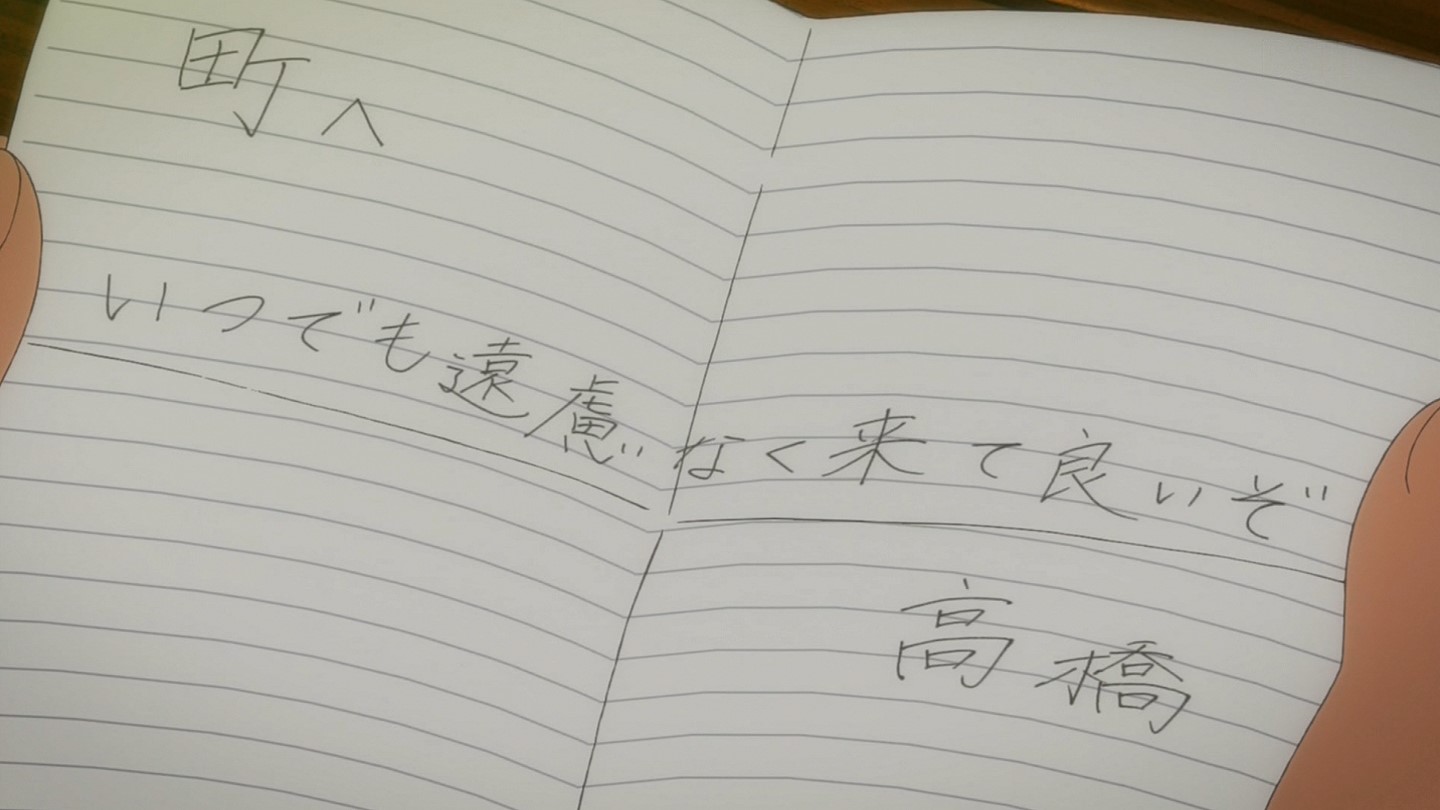 町へ
いつでも遠慮なく来て良いぞ
高橋